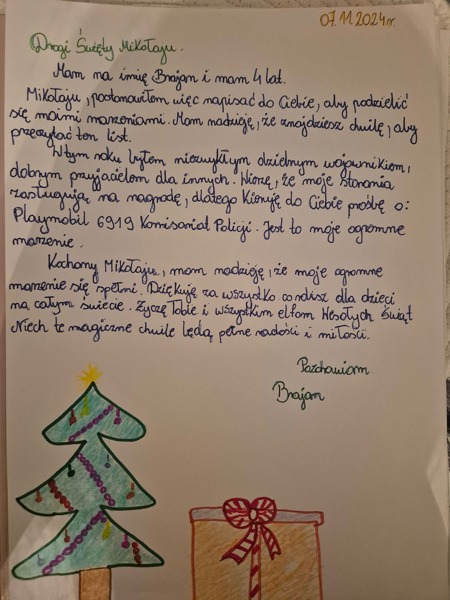 07.11.2024r.
Drogi Święty Mikołaju.
Mam na imię Brajan i mam 4 lat.
Mikołaju, postanowiłem więc napisać do Ciebie, aby podzielić
się moimi marzeniami. Mam nadzieję, że znajdziesz chwilę, aby
przeczytać ten list.
W tym roku byłem niezwykłym dzielnym wojownikiem,
dobrym przyjacielem dla innych. Wierzę, że moje starania
zasługują na nagrodę, dlatego kieruję do Ciebie prośbę o:
Playmobil 6919 Komisariat Policji. Jest to moje ogromne
marzenie.
Kochany Mikołaju, mam nadzieję, że moje ogromne
marzenie się spełni. Dziękuję za wszystko co robisz dla dzieci
na całym świecie. Życzę Tobie i wszystkim elfom Wesołych Świąt
Niech te magiczne chwile będą pełne radości i miłości.
Pozdrawiam
Brajan